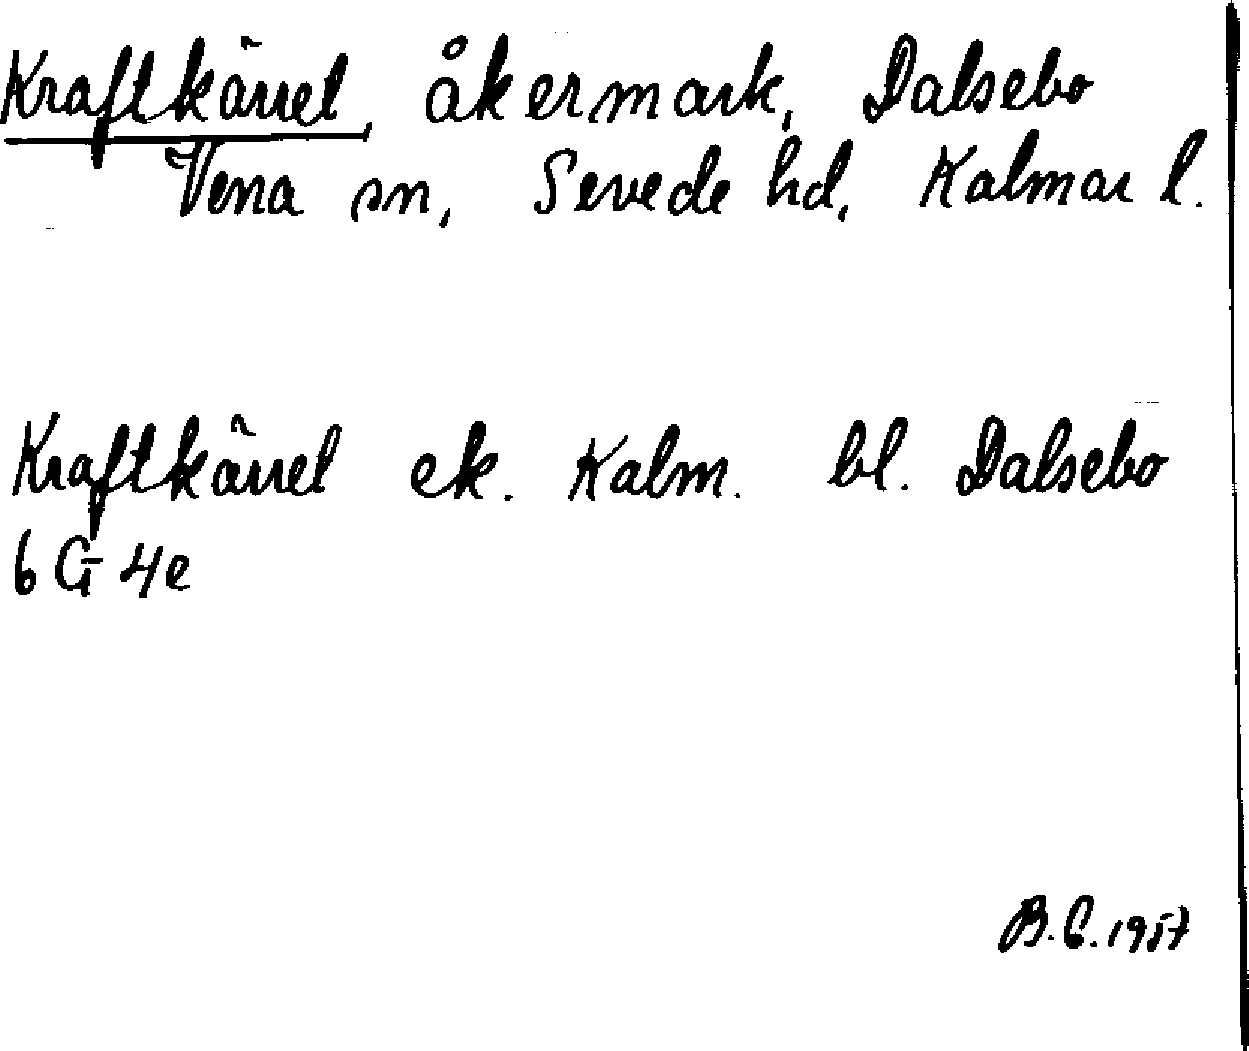 Kraftkärret, åkermark, Dalsebo
Vena sn, Sevede hd, Kalmar l.
Kraftkärret ek. Kalm. bl. Dalsebo
6 G 4e
B.G. 1957